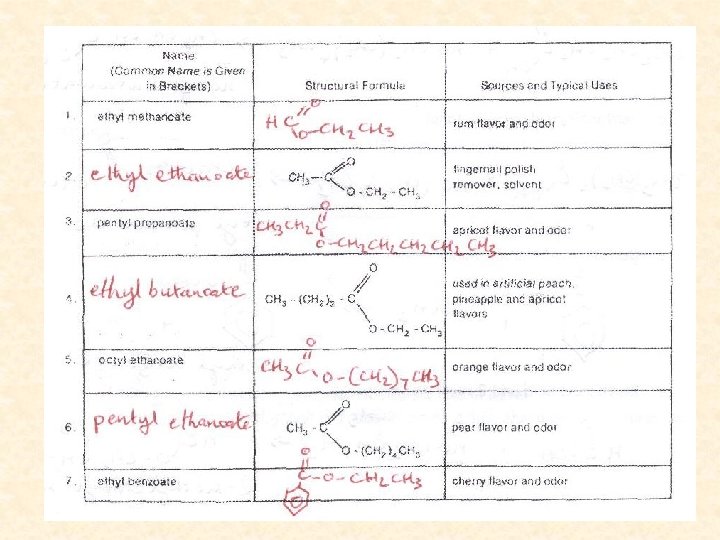 Name
(Common Name is Given
in Brackets)
Structural Formula
Sources and Typical Uses
1.
ethyl methanoate
O
H C
O-CH2 CH3
rum flavor and odor
2.
ethyl ethanoate
O
CH3-C
O-CH2-CH3
fingernail polish
remover, solvent
3.
pentyl propanoate
O
CH3 CH2 C
O-CH2 CH2 CH2 CH2 CH3
apricot flavor and odor
4.
ethyl butanoate
O
CH3-(CH2)3-C
O-CH2-CH3
used in artificial peach,
pineapple and apricot
flavors
5.
octyl ethanoate
O
CH3 C
O-(CH2)7 CH3
orange flavor and odor
6.
pentyl ethanoate
O
CH3-C
O-(CH2)4CH3
pear flavor and odor
7.
ethyl benzoate
O
C-O-CH2 CH3
cherry flavor and odor